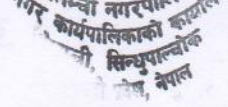 नगरपा
नगर कार्यपालिकाको कार्याल
सिन्धुपाल्चोक
प्रदेश, नेपाल